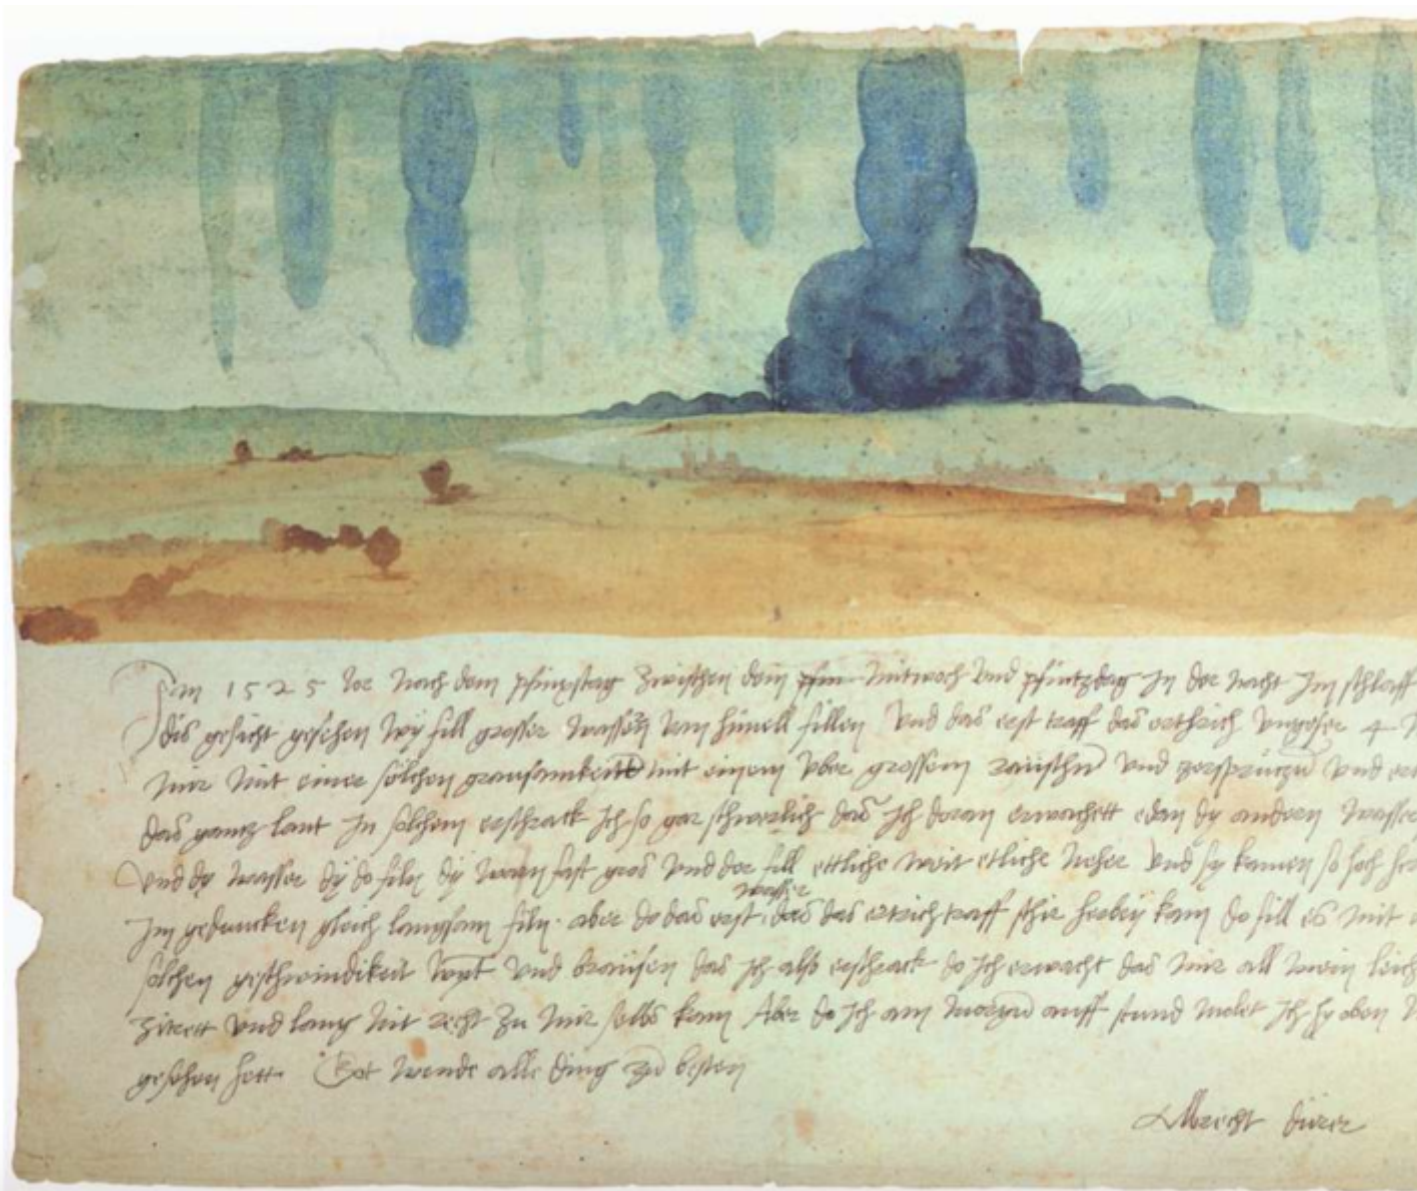 Im 1525 Jor nach dem pfinxstag zwischen dem pfin mitwoch und pfintzdag in der nacht im schlaff
dis gesicht gesehen wy fill grosser wassern vom himell fillen Und das erst traff das erthrich ungefer 4
mir mit einer sölchen grausamkeitt mit einem uber grossem raüschn und zersprützn und
das gantz lant In sölchem erschrack ich so gar schwerlich das ich doran erwachett edan dy andern wasser
Und dy wasser dy do filn dy warn fast gros Und der fill ettliche weit etliche neher Und sy kamen so hoch
im gedancken gleich langsam filn. aber do das erst wasser das das ertrich traff schir herbey kam do fill es mit
sölchen geschwindikeit wynt und braüsen das ich also erschrack do ich erwacht das mir all mein
zitrett und lang nit recht zu mir selbs kam Aber do ich am morgn auff stund molet ich hy oben
gesehen hett. Got wende alle ding zu besten
Albrecht dürer